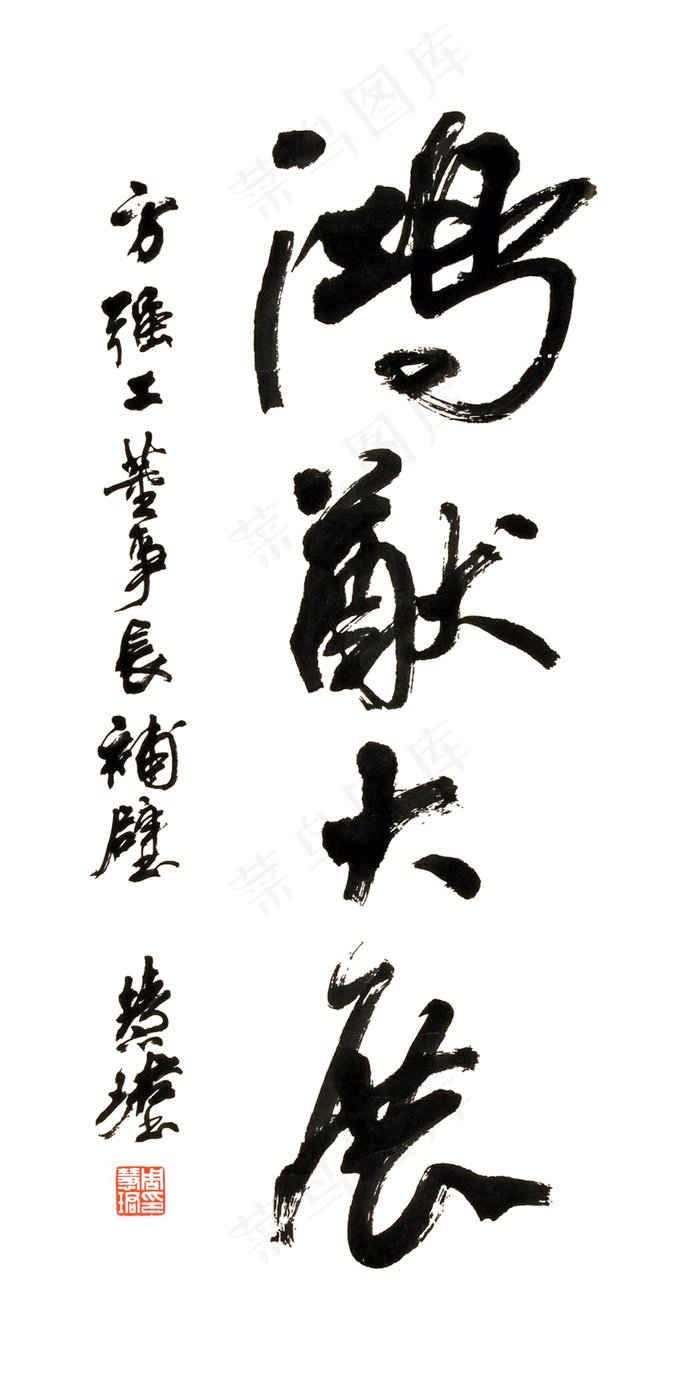 鴻猷大展
方強工董事長補壁 慧珺
周印慧珺
菜鸟图库
菜鸟图库
菜鸟图库
菜鸟图库